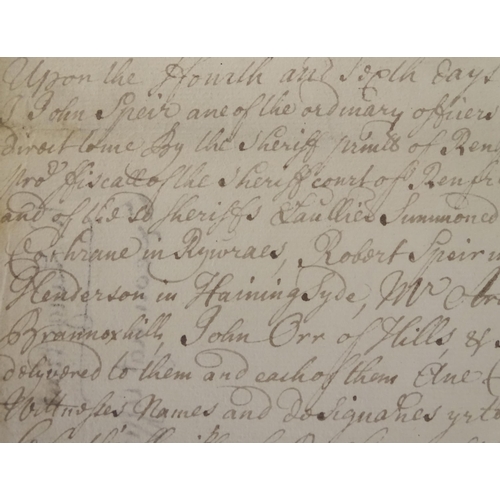 Upon the Fourth and Sexth days
I John Speir ane of the ordinary officers
direct to me By the Sheriff prin¹¹ of Ren
Pro⁽ʳ⁾ fiscall of the Sheriff court of Renfr
and of the sd Sheriffs Summoned
Cochrane in Rywraes, Robert Speir
Henderson in HainingSyde, Mr
Brannoxhill, John Orr of Hills, &
delivered to them and each of them Ane
Witnesses Names and designa'nes yrto